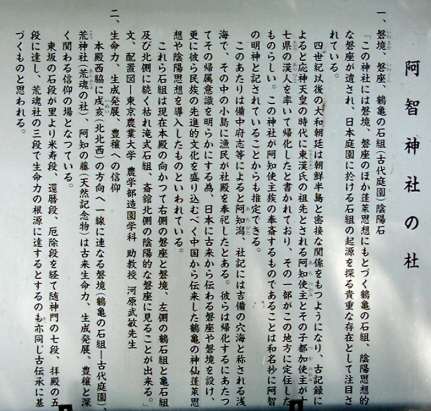 阿智神社の社
一、磐境、磐座、鶴亀の石組（古代庭園）陰陽石
「この神社には磐境、磐座のほか蓬莱思想にもとづく鶴亀の石組、陰陽思想的
な磐座が遺され、日本庭園に於ける石組の起源を探る貴重な存在として注目さ
れている。
四世紀以後の大和朝廷は朝鮮半島と密接な関係をもつようになり、古記録に
よると応神天皇の時代に東漢氏の祖先とされる阿知使主とその子都加使主が十
七県の漢人を率いて帰化したと書かれており、その一部がこの地方に定住した
ものらしい。この神社が阿知使主族の奉斎するものであることは和名抄に阿智
の明神と記されていることからも推定できる。
このあたりは備中府志等によると阿知潟、社記には吉備の穴海と称される浅
海で、その中の小島に漁民が社殿を奉祀したとある。彼らは帰化するにあたっ
てその帰属意識を明らかにする為、日本に古来から伝わる磐座や磐境を設け、
更に彼ら民族の先進的文化を盛り込むべく中国から伝来した鶴亀の神仙蓬莱思
想や陰陽思想を導入したものといわれている。
これら石組は現在本殿の向かつて右側の磐座と磐境、左側の鶴石組と亀石組
及び北側に続く枯れ滝式石組、斎館北側の陰陽的な磐座に見ることが出来る。
文、配置図―東京農業大学 農学部造園学科 助教授 河原武敏先生
二、生命力、生成発展、豊穣への信仰
本殿西脇に戌亥（北北西）の方向へ一線に連なる磐境（鶴亀の石組―古代庭園）、
荒神社（荒魂の社）、阿知の藤（天然記念物）は古来生命力、生成発展、豊穣と深
く関わる信仰の場となつている。
東坂の石段が里より米寿段、還暦段、厄除段を経て随神門の七段、拝殿の五
段に達し、荒魂社の三段で生命力の根源に達するとするのも亦同じ古伝承に基
づくものと思われる。